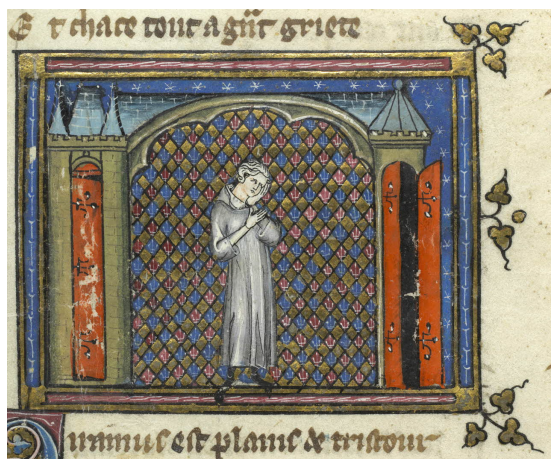 E t chace tout a gñt griete
iramus est plains de tristour